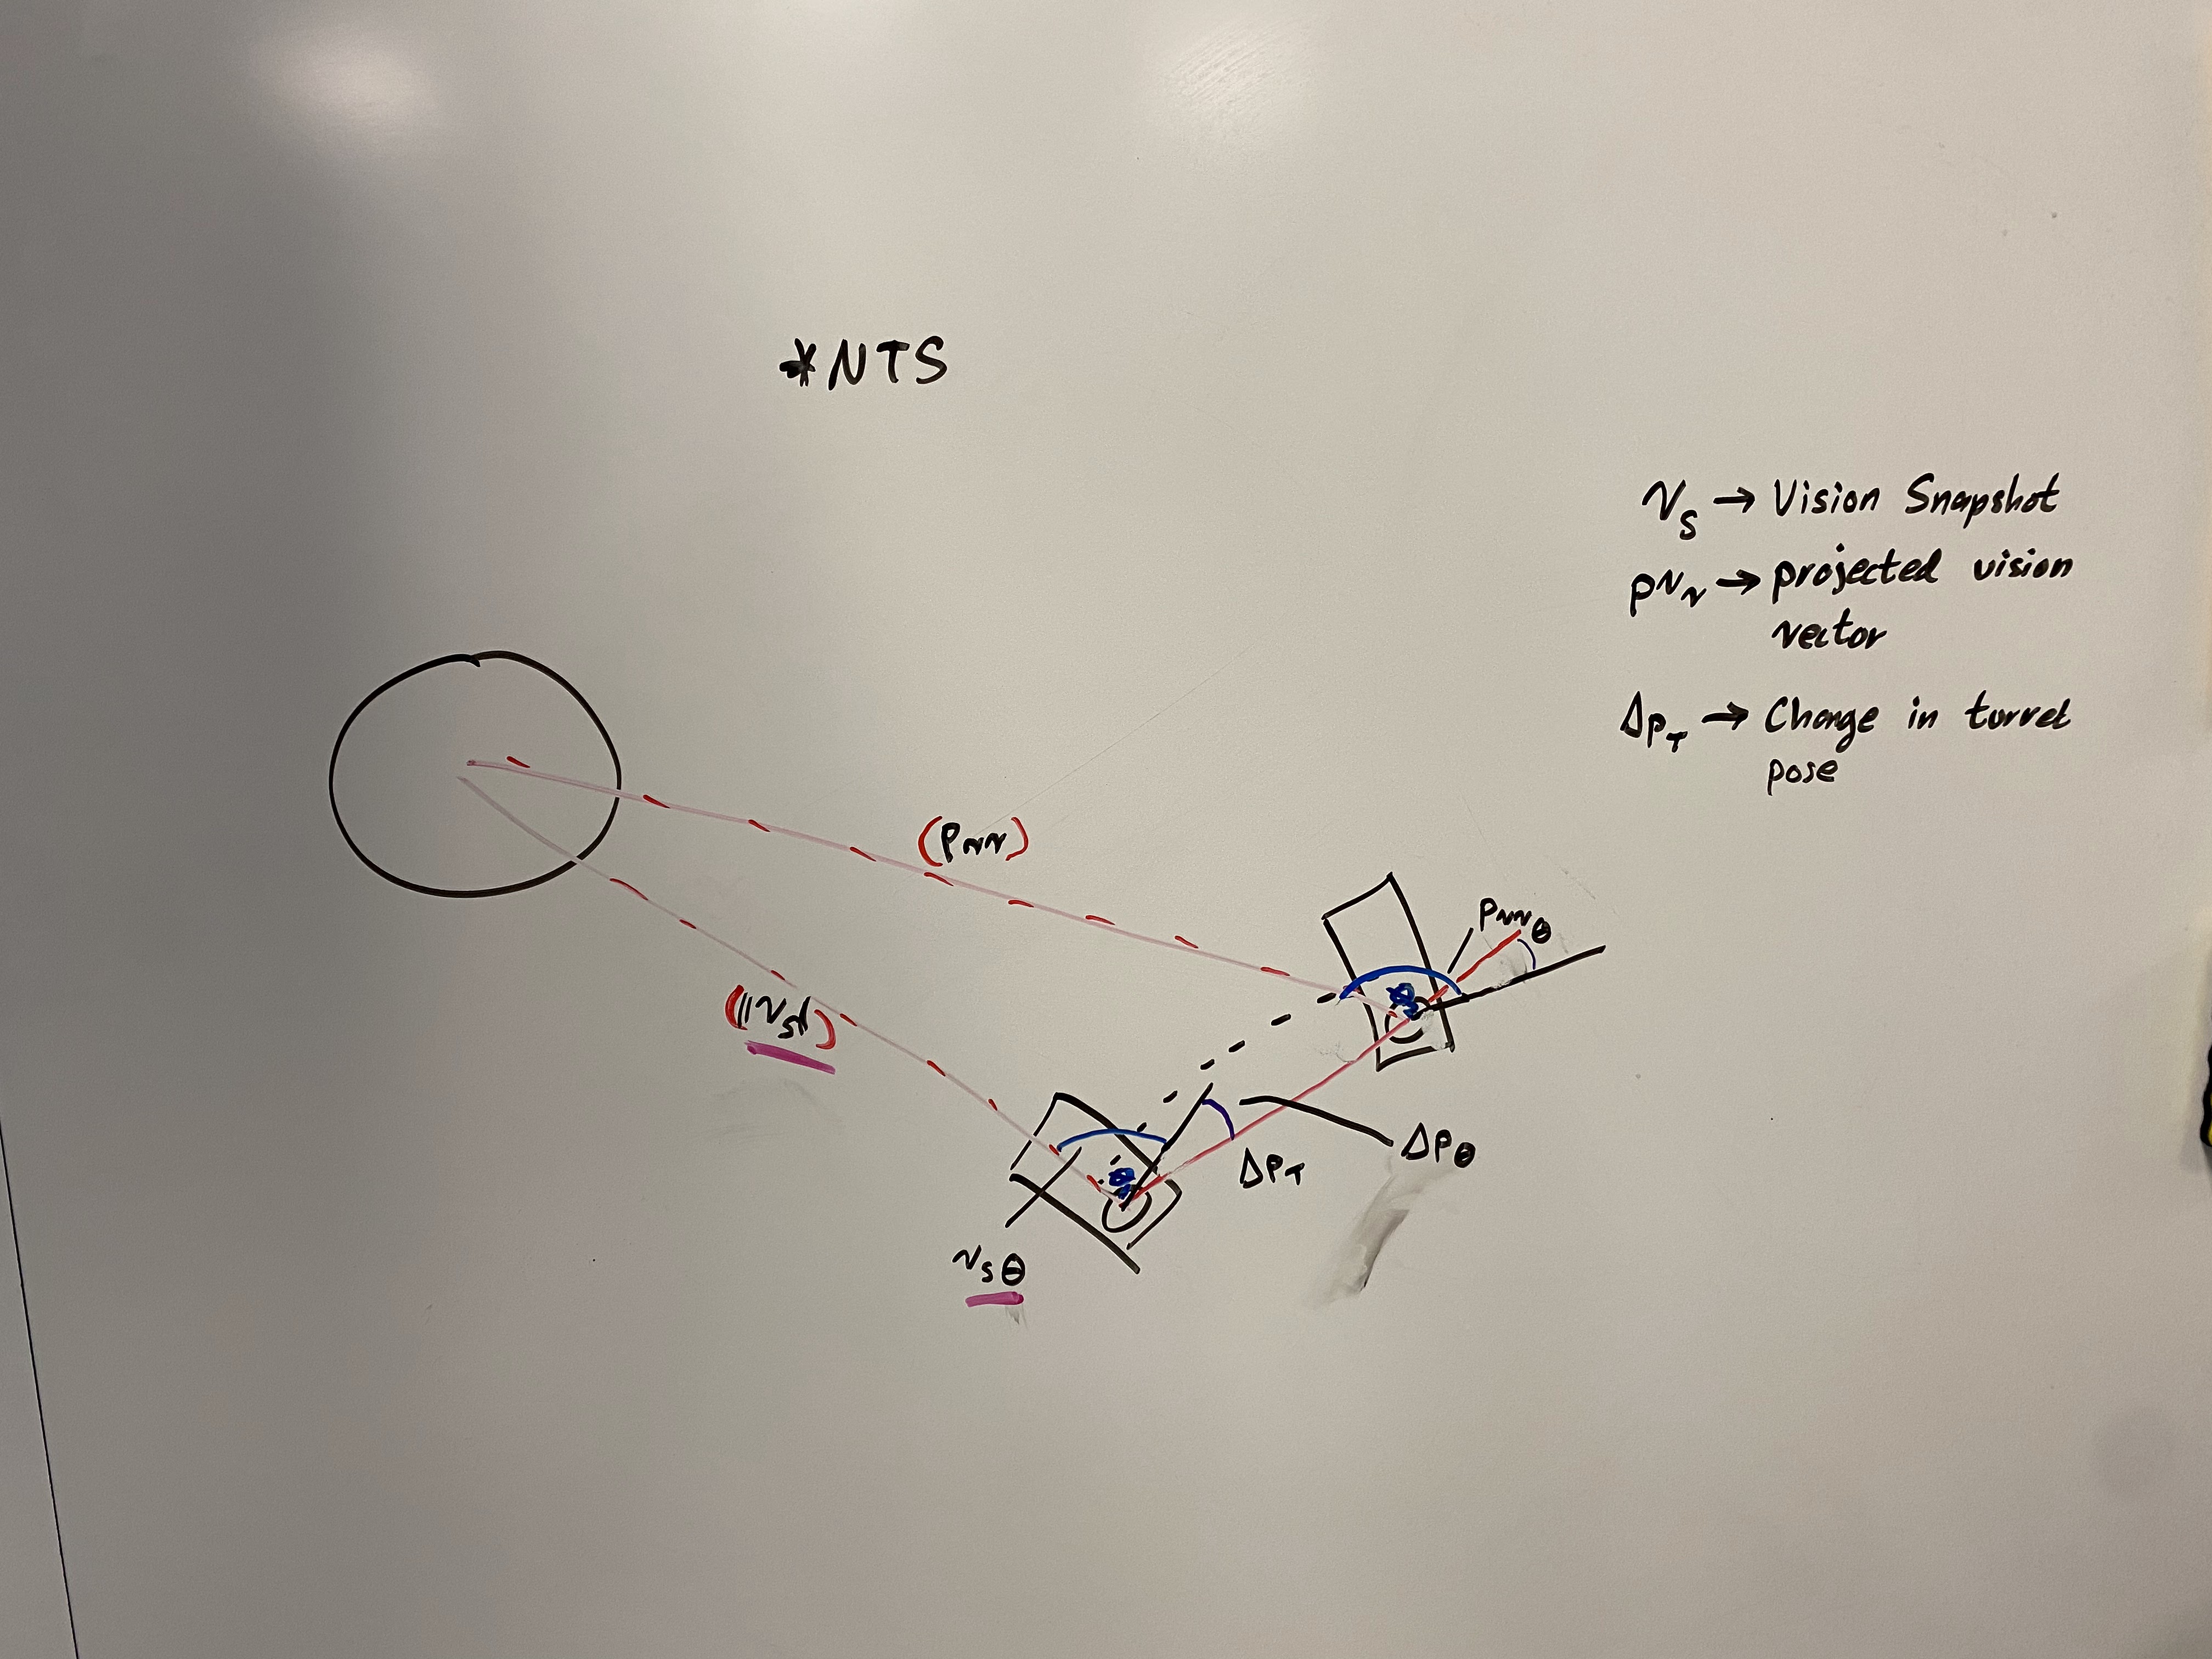 *NTS
Vs → Vision Snapshot
PVv → projected vision
vector
ΔPT → Change in turret
pose
(PVv)
PVvθ
ΔPθ
ΔPT
Vsθ